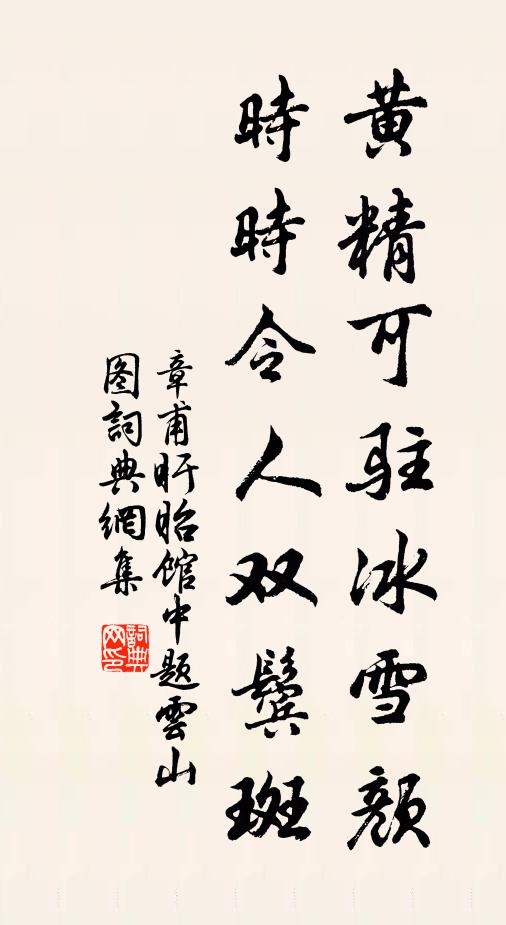 黄精可驻冰雪颜
時時令人双鬓斑
章甫盱眙馆中题雲山
图詞典網集
詞典
网印